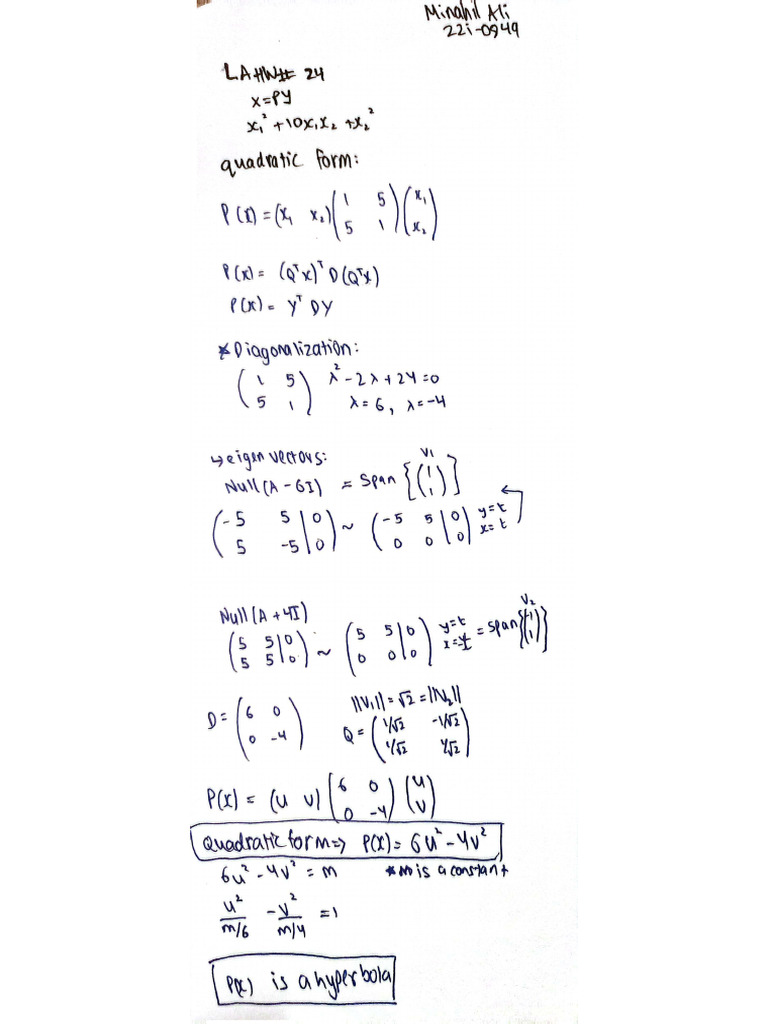 Minahil Ali
22i-0949
LA HW# 24
x=Py
x₁² + 10x₁x₂ + x₂²
quadratic form:
P(x) = (x₁ x₂) ( 1 5 ; 5 1 ) ( x₁ ; x₂ )
P(x) = (Qᵀx)ᵀ D (Qᵀx)
P(x) = Yᵀ DY
*Diagonalization:
( 1 5 ; 5 1 ) λ² - 2λ + 24 = 0
λ = 6, λ = -4
↳ eigen vectors:
Null(A - 6I) = Span { ( 1 ; 1 ) } v₁
( -5 5 | 0 ; 5 -5 | 0 ) ~ ( -5 5 | 0 ; 0 0 | 0 ) y=t x=t
Null(A + 4I)
( 5 5 | 0 ; 5 5 | 0 ) ~ ( 5 5 | 0 ; 0 0 | 0 ) y=t = span { ( -1 ; 1 ) } v₂
D = ( 6 0 ; 0 -4 ) ||V₁|| = √2 = ||V₂||
Q = ( 1/√2 -1/√2 ; 1/√2 1/√2 )
P(x) = (u v) ( 6 0 ; 0 -4 ) ( u ; v )
Quadratic form => P(x) = 6u² - 4v²
6u² - 4v² = m *m is a constant
u²/(m/6) - v²/(m/4) = 1
P(x) is a hyperbola